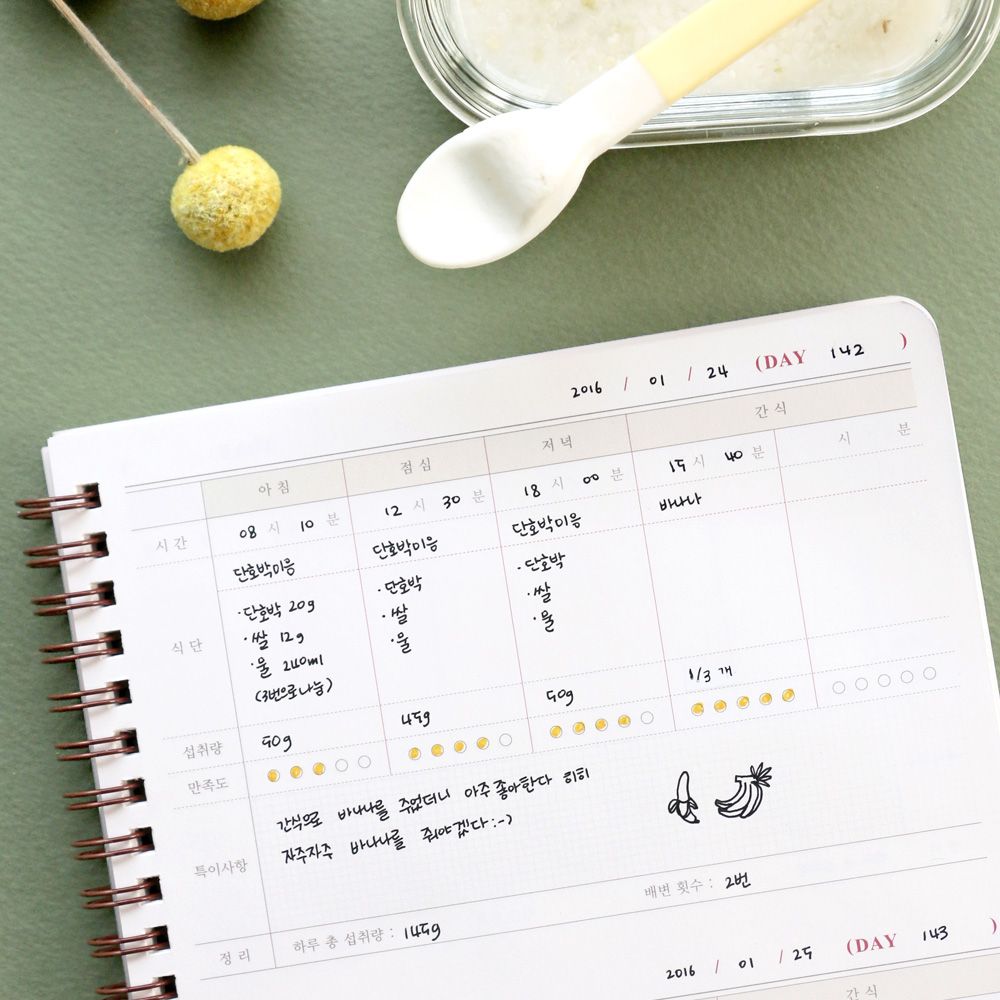 2016 / 01 / 24 (DAY 142 )
아침 점심 저녁 간식
시간 08 시 10 분 12 시 30 분 18 시 00 분 15 시 40 분 시 분
식단 단호박미음 단호박미음 단호박미음 바나나
·단호박 20g ·단호박 ·단호박
·쌀 12g ·쌀 ·쌀
·물 240ml ·물 ·물
(3번으로 나눔)
섭취량 50g 45g 50g 1/3 개
만족도
특이사항 간식으로 바나나를 주었더니 아주 좋아한다 히히
자주자주 바나나를 줘야겠다 :-)
정리 하루 총 섭취량 : 145g 배변 횟수 : 2번
2016 / 01 / 25 (DAY 143 )
간식